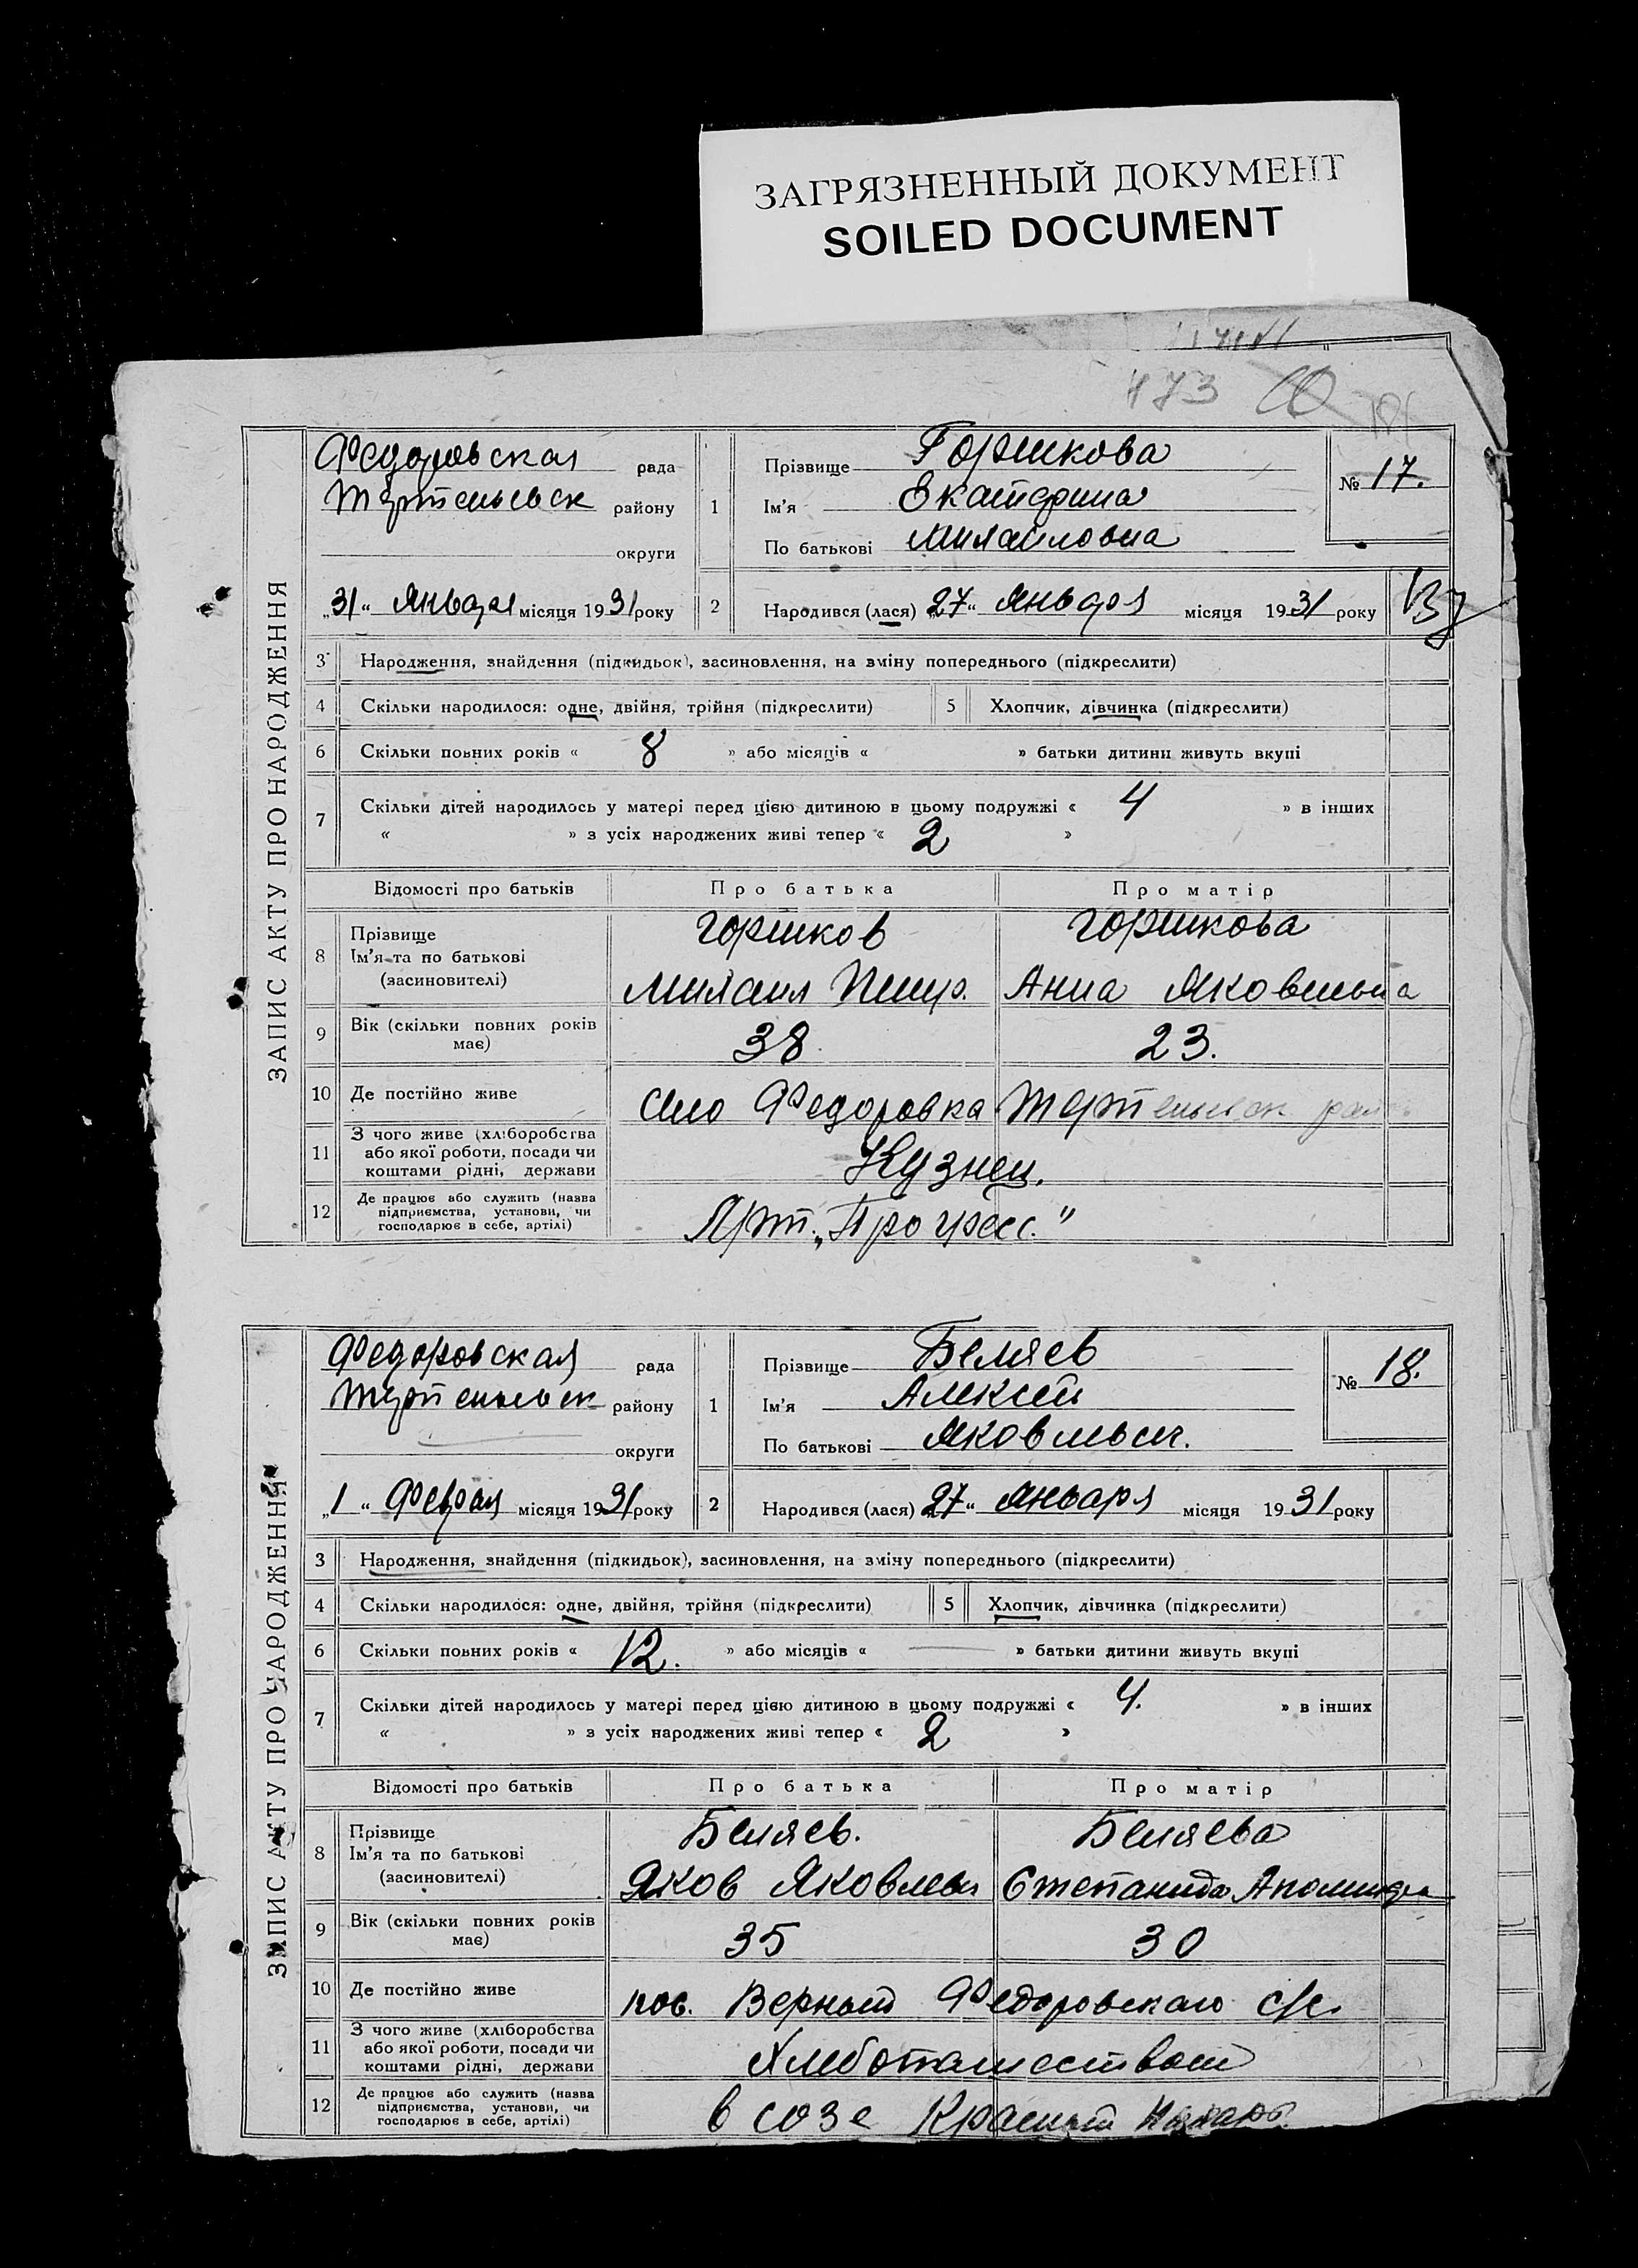 ЗАГРЯЗНЕННЫЙ ДОКУМЕНТ
SOILED DOCUMENT
173
ЗАПИС АКТУ ПРО НАРОДЖЕННЯ
Федоровская рада
району
округи
„31“ Января місяця 1931 року
1
Прізвище Горшкова
Ім'я Екатерина
По батькові Михайловна
№ 17.
2 Народився (лася) „27“ Января місяця 1931 року
3 Народження, знайдення (підкидьок), засиновлення, на зміну попереднього (підкреслити)
4 Скільки народилося: одне, двійня, трійня (підкреслити) 5 Хлопчик, дівчинка (підкреслити)
6 Скільки повних років « 8 » або місяців « » батьки дитини живуть вкупі
7 Скільки дітей народилось у матері перед цією дитиною в цьому подружжі « 4 » в інших
« » з усіх народжених живі тепер « 2 »
Відомості про батьків Про батька Про матір
8 Прізвище Горшков Горшкова
Ім'я та по батькові
(засиновителі) Михаил Анна Яковльвна
9 Вік (скільки повних років має) 38 23.
10 Де постійно живе Село Федоровка
11 З чого живе (хліборобства або якої роботи, посади чи коштами рідні, держави Кузнец.
12 Де працює або служить (назва підприємства, установи, чи господарює в себе, артілі) Арт. „Прогресс."
ЗАПИС АКТУ ПРО НАРОДЖЕННЯ
Федоровская рада
району
округи
„1“ Феврал місяця 1931 року
1
Прізвище Беляев
Ім'я Алексей
По батькові Яковльич.
№ 18.
2 Народився (лася) „27“ Января місяця 1931 року
3 Народження, знайдення (підкидьок), засиновлення, на зміну попереднього (підкреслити)
4 Скільки народилося: одне, двійня, трійня (підкреслити) 5 Хлопчик, дівчинка (підкреслити)
6 Скільки повних років « 12. » або місяців « — » батьки дитини живуть вкупі
7 Скільки дітей народилось у матері перед цією дитиною в цьому подружжі « 4. » в інших
« » з усіх народжених живі тепер « 2 »
Відомості про батьків Про батька Про матір
8 Прізвище Беляев. Беляева
Ім'я та по батькові
(засиновителі) Яков Яковлев Степанида
9 Вік (скільки повних років має) 35 30
10 Де постійно живе пос. Верный Федоровскаго с/с.
11 З чого живе (хліборобства або якої роботи, посади чи коштами рідні, держави Хлебопашеством
12 Де працює або служить (назва підприємства, установи, чи господарює в себе, артілі) в созе Красный